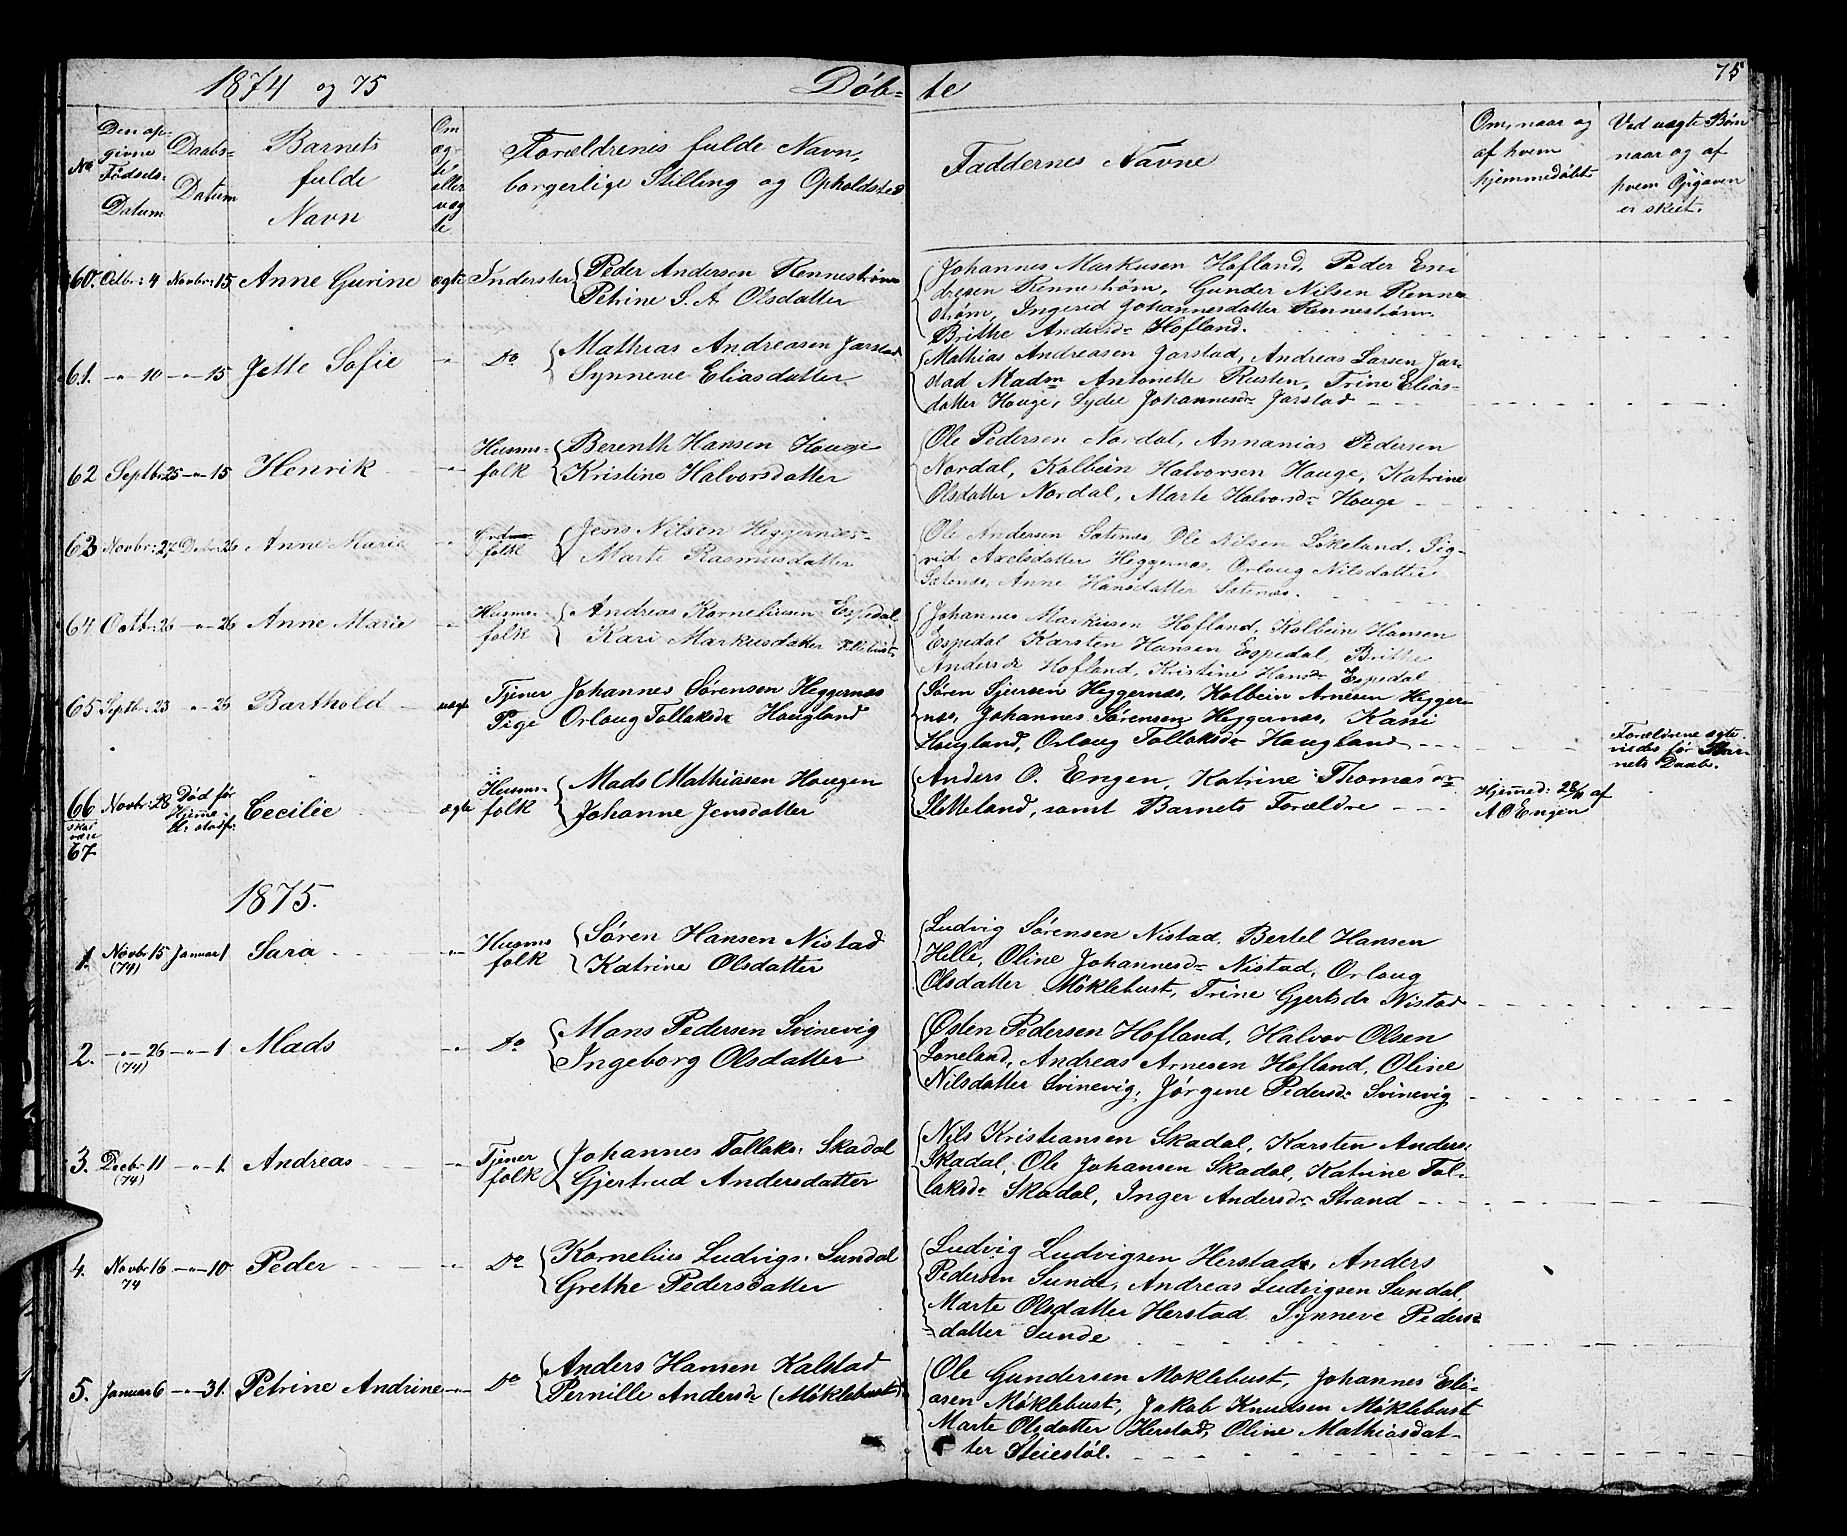 1874 og 75 Døb- te 75
No Den opgivne Fødsels- Datum
Daabs- Datum
Barnets fulde Navn
Om ægte eller uægte
Forældrenes fulde Navn, borgerlige Stilling og Opholdsted
Faddernes Navne
Om, naar og af hvem hjemmedøbt
Ved uægte Børn naar og af hvem Opgaven er skeet.
60. Octbr: 4 Novbr: 15 Anne Gurine ægte Inderster Peder Andersen Rennestrøm
Petrine S. A. Olsdatter
Johannes Markusen Hofland, Peder En-
dresen Rennestrøm, Gunder Nilsen Renne-
strøm, Ingerid Johannesdatter Rennestrøm.
Brithe Andersdr Hofland.
61. -"- 10 -"- 15 Jette Sofie -"- Do Mathias Andreasen Jarstad
Synneve Eliasdatter
Mathias Andreasen Jarstad, Andreas Larsen Jar-
stad Madm Antonette Rusten, Trine Elias-
datter Houge, Sydie Johannesdr Jarstad
62 Septbr: 25 -"- 15 Henrik -"- Husmfolk Berenth Hansen Houge
Kristine Halvorsdatter
Ole Pedersen Nordal, Annanias Pedersen
Nordal, Kolbein Halvorsen Houge, Katrine
Olsdatter Nordal, Marte Halvorsdr Houge
63 Novbr: 27 Decbr: 26 Anne Marie -"- folk Jens Nilsen Heggernæs
Marte Rasmusdatter
Ole Andersen Sætenæs, Ole Nilsen Løkeland, Sig-
rid Axelsdatter Heggernæs, Orloug Nilsdatter
Sætenæs, Anne Hansdatter Sætenæs.
64 Octbr: 26 -"- 26 Anne Marie -"- Husmfolk Andreas Korneliusen Espedal
Kari Markusdatter
Johannes Markusen Hofland, Kolbein Hansen
Espedal Karsten Hansen Espedal, Brithe
Andersdr Hofland, Kristine Hansdr Espedal
65 Septbr: 23 -"- 26 Barthold uægte Tjener Johannes Sørensen Heggernæs
Pige Orloug Tollaksdr Hougland
Søren Sjursen Heggernæs, Kolbein Arnesen Hegger-
næs, Johannes Sørensen Heggernæs, Kari
Hougland, Orloug Tollaksdr Hougland
Forældrene ægte-
viedes før Bar-
nets Daab.
66 Novbr: 28 Død før Cecilie ægte Husmfolk Mads Mathiasen Hougen
Johanne Jensdatter
Anders O. Engen, Katrine Thomasdr
Sletteland, samt Barnets Forældre
Hjemmed: 28/11 af
A O Engen
skal
være
67
1875.
1. Novbr 15 Januar 1 Sara -"- Husmfolk Søren Hansen Nistad
(74) Katrine Olsdatter
Ludvig Sørensen Nistad, Bertel Hansen
Helle, Oline Johannesdr Nistad, Orloug
Olsdatter Møklebust, Trine Gjertsdr Nistad
2. -"- 26 -"- 1 Mads -"- Do Mons Pedersen Svinevig
(74) Ingeborg Olsdatter
Østen Pedersen Hofland, Halvor Olsen
Loneland, Andreas Arnesen Hofland, Oline
Nilsdatter Svinevig, Jørgine Pedersdr Svinevig
3. Decbr 11 -"- 1. Andreas -"- Tjenerfolk Johannes Tollaks: Skadal
(74) Gjertrud Andersdatter
Nils Kristiansen Skadal, Karsten Anders:
Skadal, Ole Johansen Skadal, Katrine Tol-
laksdr Skadal, Inger Andersdr Strand
4. Novbr 16 -"- 10 Peder -"- Do Kornelius Ludvigs: Sundal
74 Grethe Pedersdatter
Ludvig Ludvigsen Herstad, Anders
Pedersen Sunde, Andreas Ludvigsen Sundal,
Marte Olsdatter Herstad Synneve Peders-
datter Sunde
5. Januar 6 -"- 31. Petrine Andrine -"- Do Anders Hansen Kalstad
Pernille Andersdr (Møklebust)
Ole Gundersen Moklebust, Johannes Eli-
asen Møklebust, Jakob Knudsen Møklebust
Marte Olsdatter Herstad, Oline Mathiasdat-
ter Steiestøl.